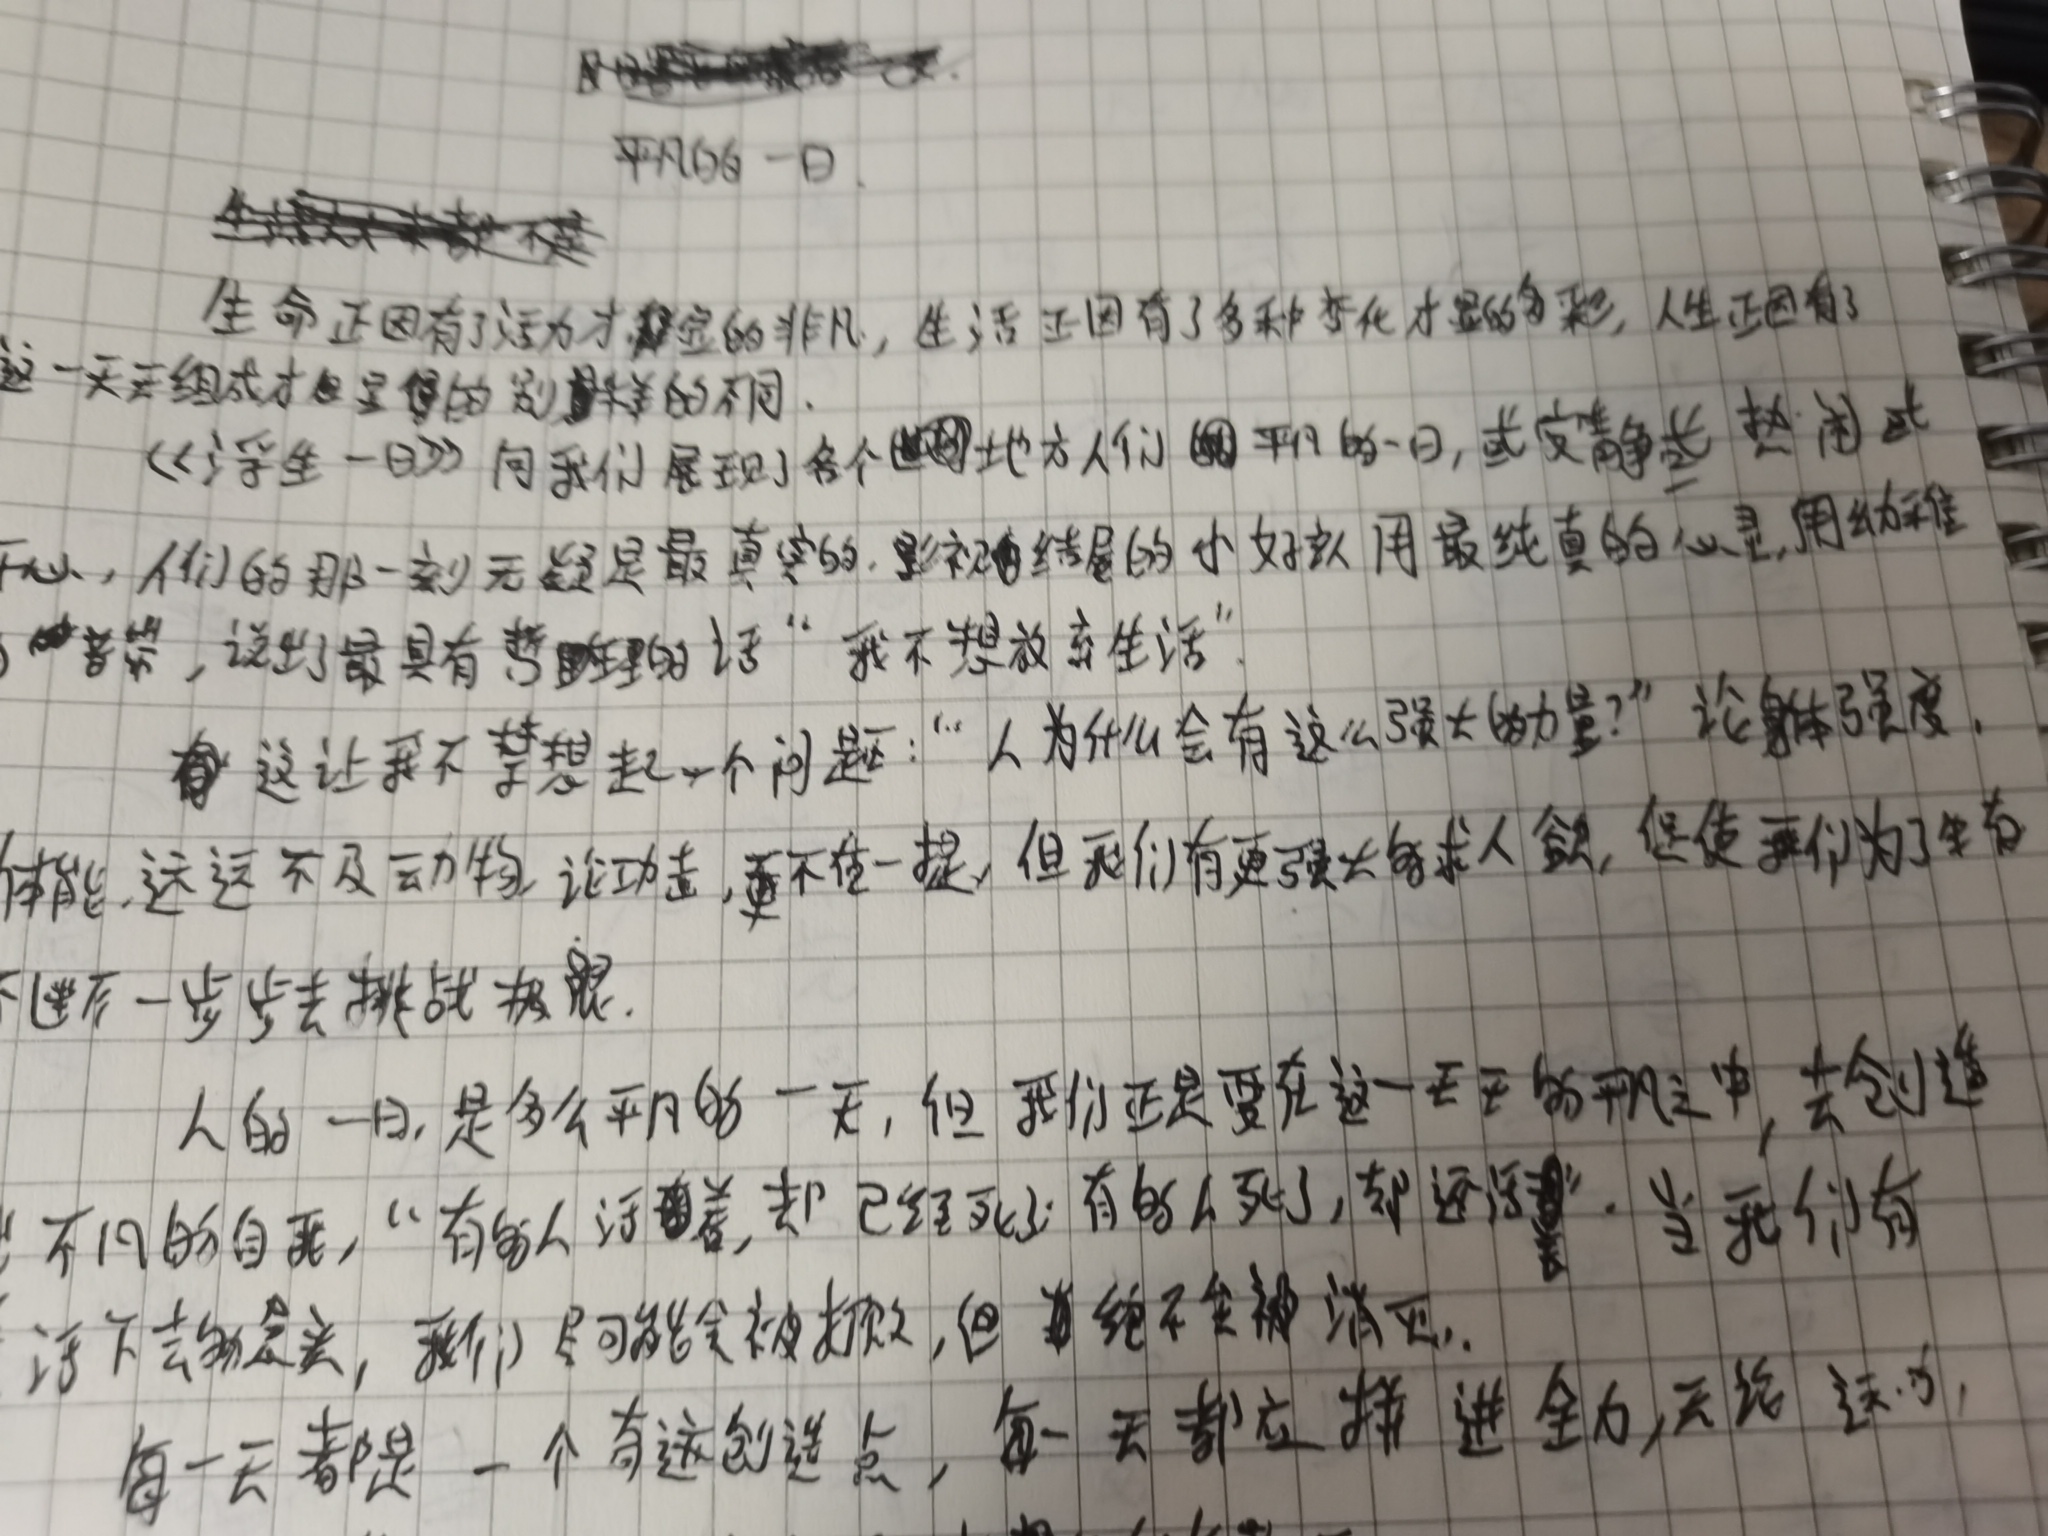 平凡的一日.
生命正因有了活力才显的非凡,生活正因有了多种变化才显的多彩,人生正因有了
这一天天组成才显的别样的不同.
《浮生一日》向我们展现了各个地方人们平凡的一日,或安静或热闹或
开心,人们的那一刻无疑是最真实的.影视结尾的小女孩用最纯真的心灵,用幼稚
音,说出了最具有哲理的话“我不想放弃生活”.
这让我不禁想起一个问题:“人为什么会有这么强大的力量?”论身体强度.
体能.远远不及动物,论功击,更不值一提,但我们有更强大的求人欲,促使我们为了生存
一步步去挑战极限.
人的一日,是多么平凡的一天,但我们正是要在这一天天的平凡之中,去创造
不凡的自我,“有的人活着,却已经死了有的人死了,却还活着”.当我们有
活下去的意义,我们尽可能会被打败,但绝不会被消灭.
每一天都是一个有这创造点,每一天都应拼进全力,无论